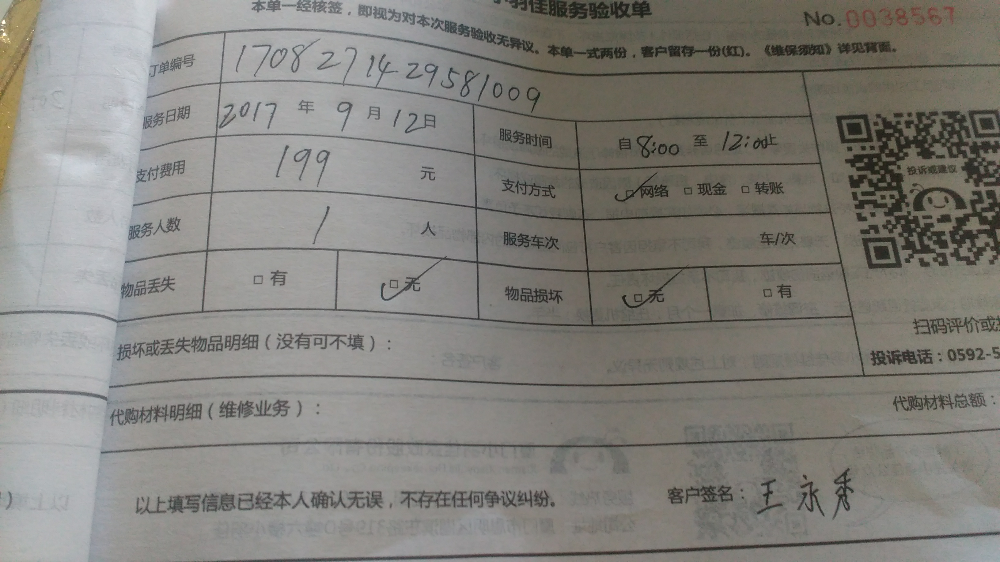 小羽佳服务验收单
No.0038567
本单一经核签，即视为对本次服务验收无异议。本单一式两份，客户留存一份(红)。《维保须知》详见背面。
订单编号 1708271429581009
服务日期 2017 年 9 月 12 日 服务时间 自 8:00 至 12:00 止
支付费用 199 元 支付方式 ☑ 网络 □ 现金 □ 转账
服务人数 1 人 服务车次 车/次
物品丢失 □ 有 ☑ 无 物品损坏 ☑ 无 □ 有
投诉或建议
扫码评价或
投诉电话：0592-5
损坏或丢失物品明细（没有可不填）：
代购材料明细（维修业务）：
代购材料总额：
以上填写信息已经本人确认无误，不存在任何争议纠纷。
客户签名：王永秀